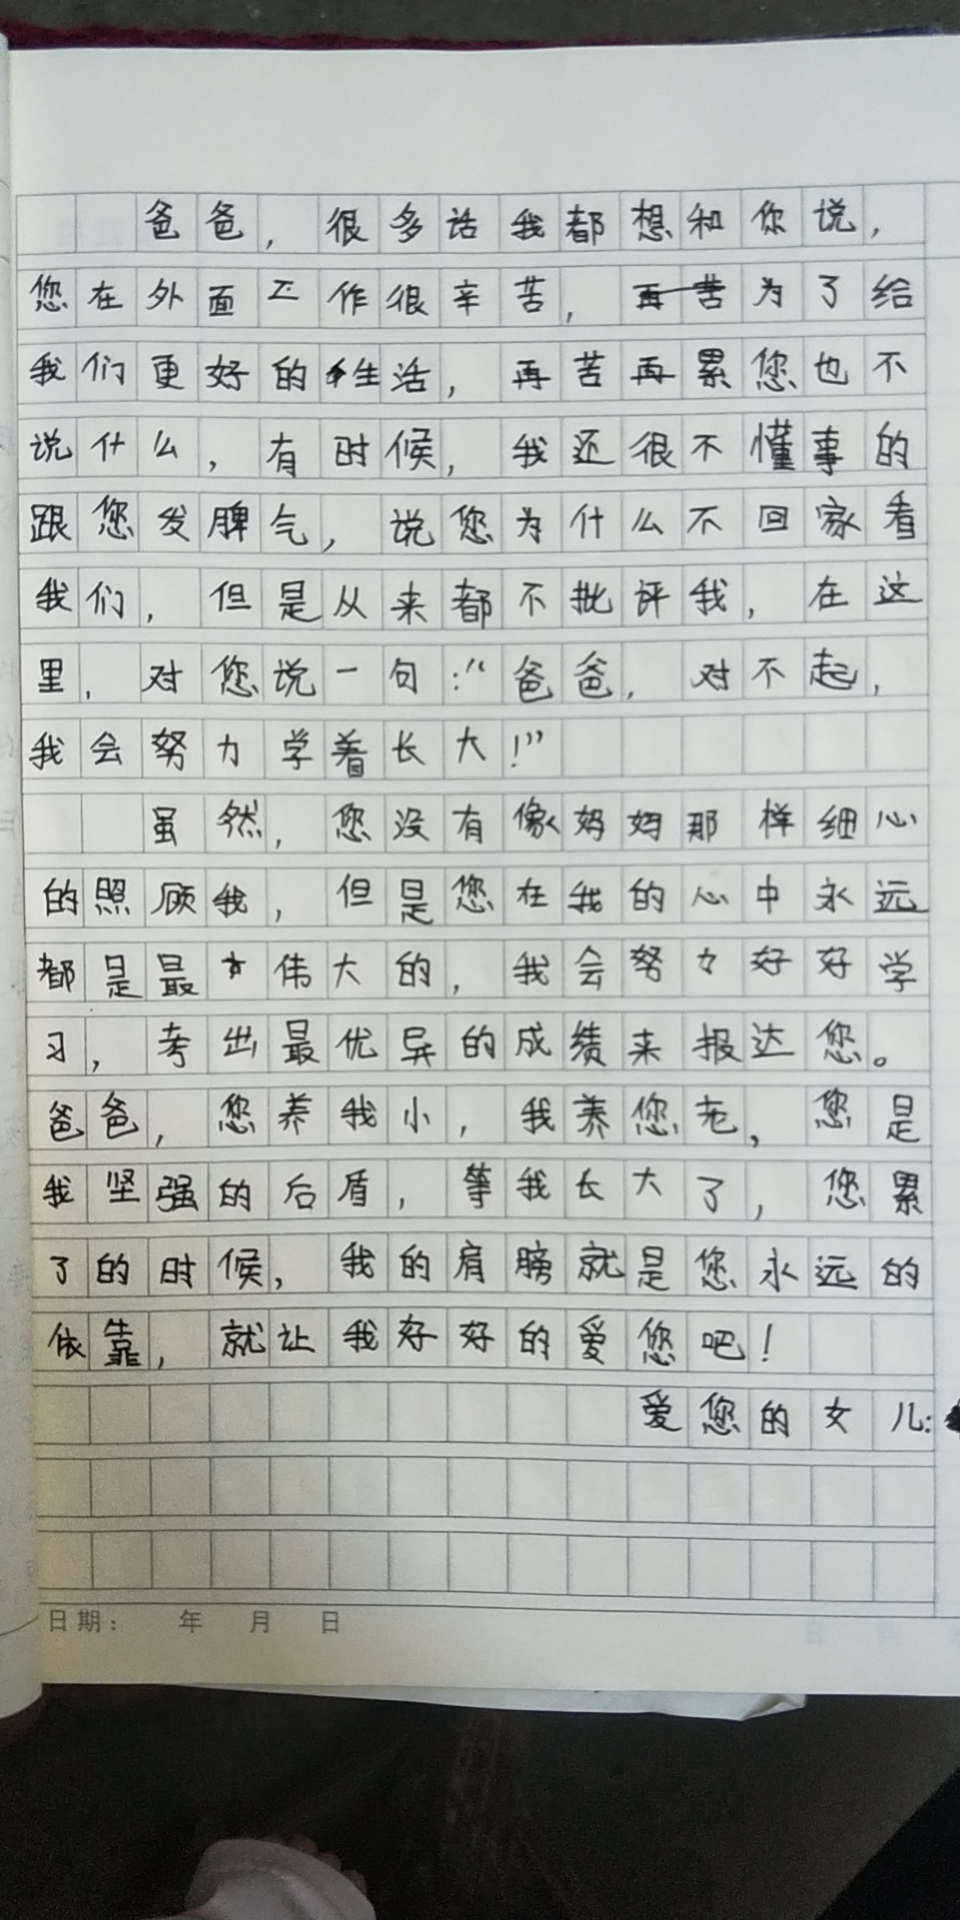 爸爸，很多话我都想和你说，
您在外面工作很辛苦，为了给
我们更好的生活，再苦再累您也不
说什么，有时候，我还很不懂事的
跟您发脾气，说您为什么不回家看
我们，但是从来都不批评我，在这
里，对您说一句：“爸爸，对不起，
我会努力学着长大！”
虽然，您没有像妈妈那样细心
的照顾我，但是您在我的心中永远
都是最伟大的，我会努力好好学
习，考出最优异的成绩来报达您。
爸爸，您养我小，我养您老，您是
我坚强的后盾，等我长大了，您累
了的时候，我的肩膀就是您永远的
依靠，就让我好好的爱您吧！
爱您的女儿：
日期： 年 月 日